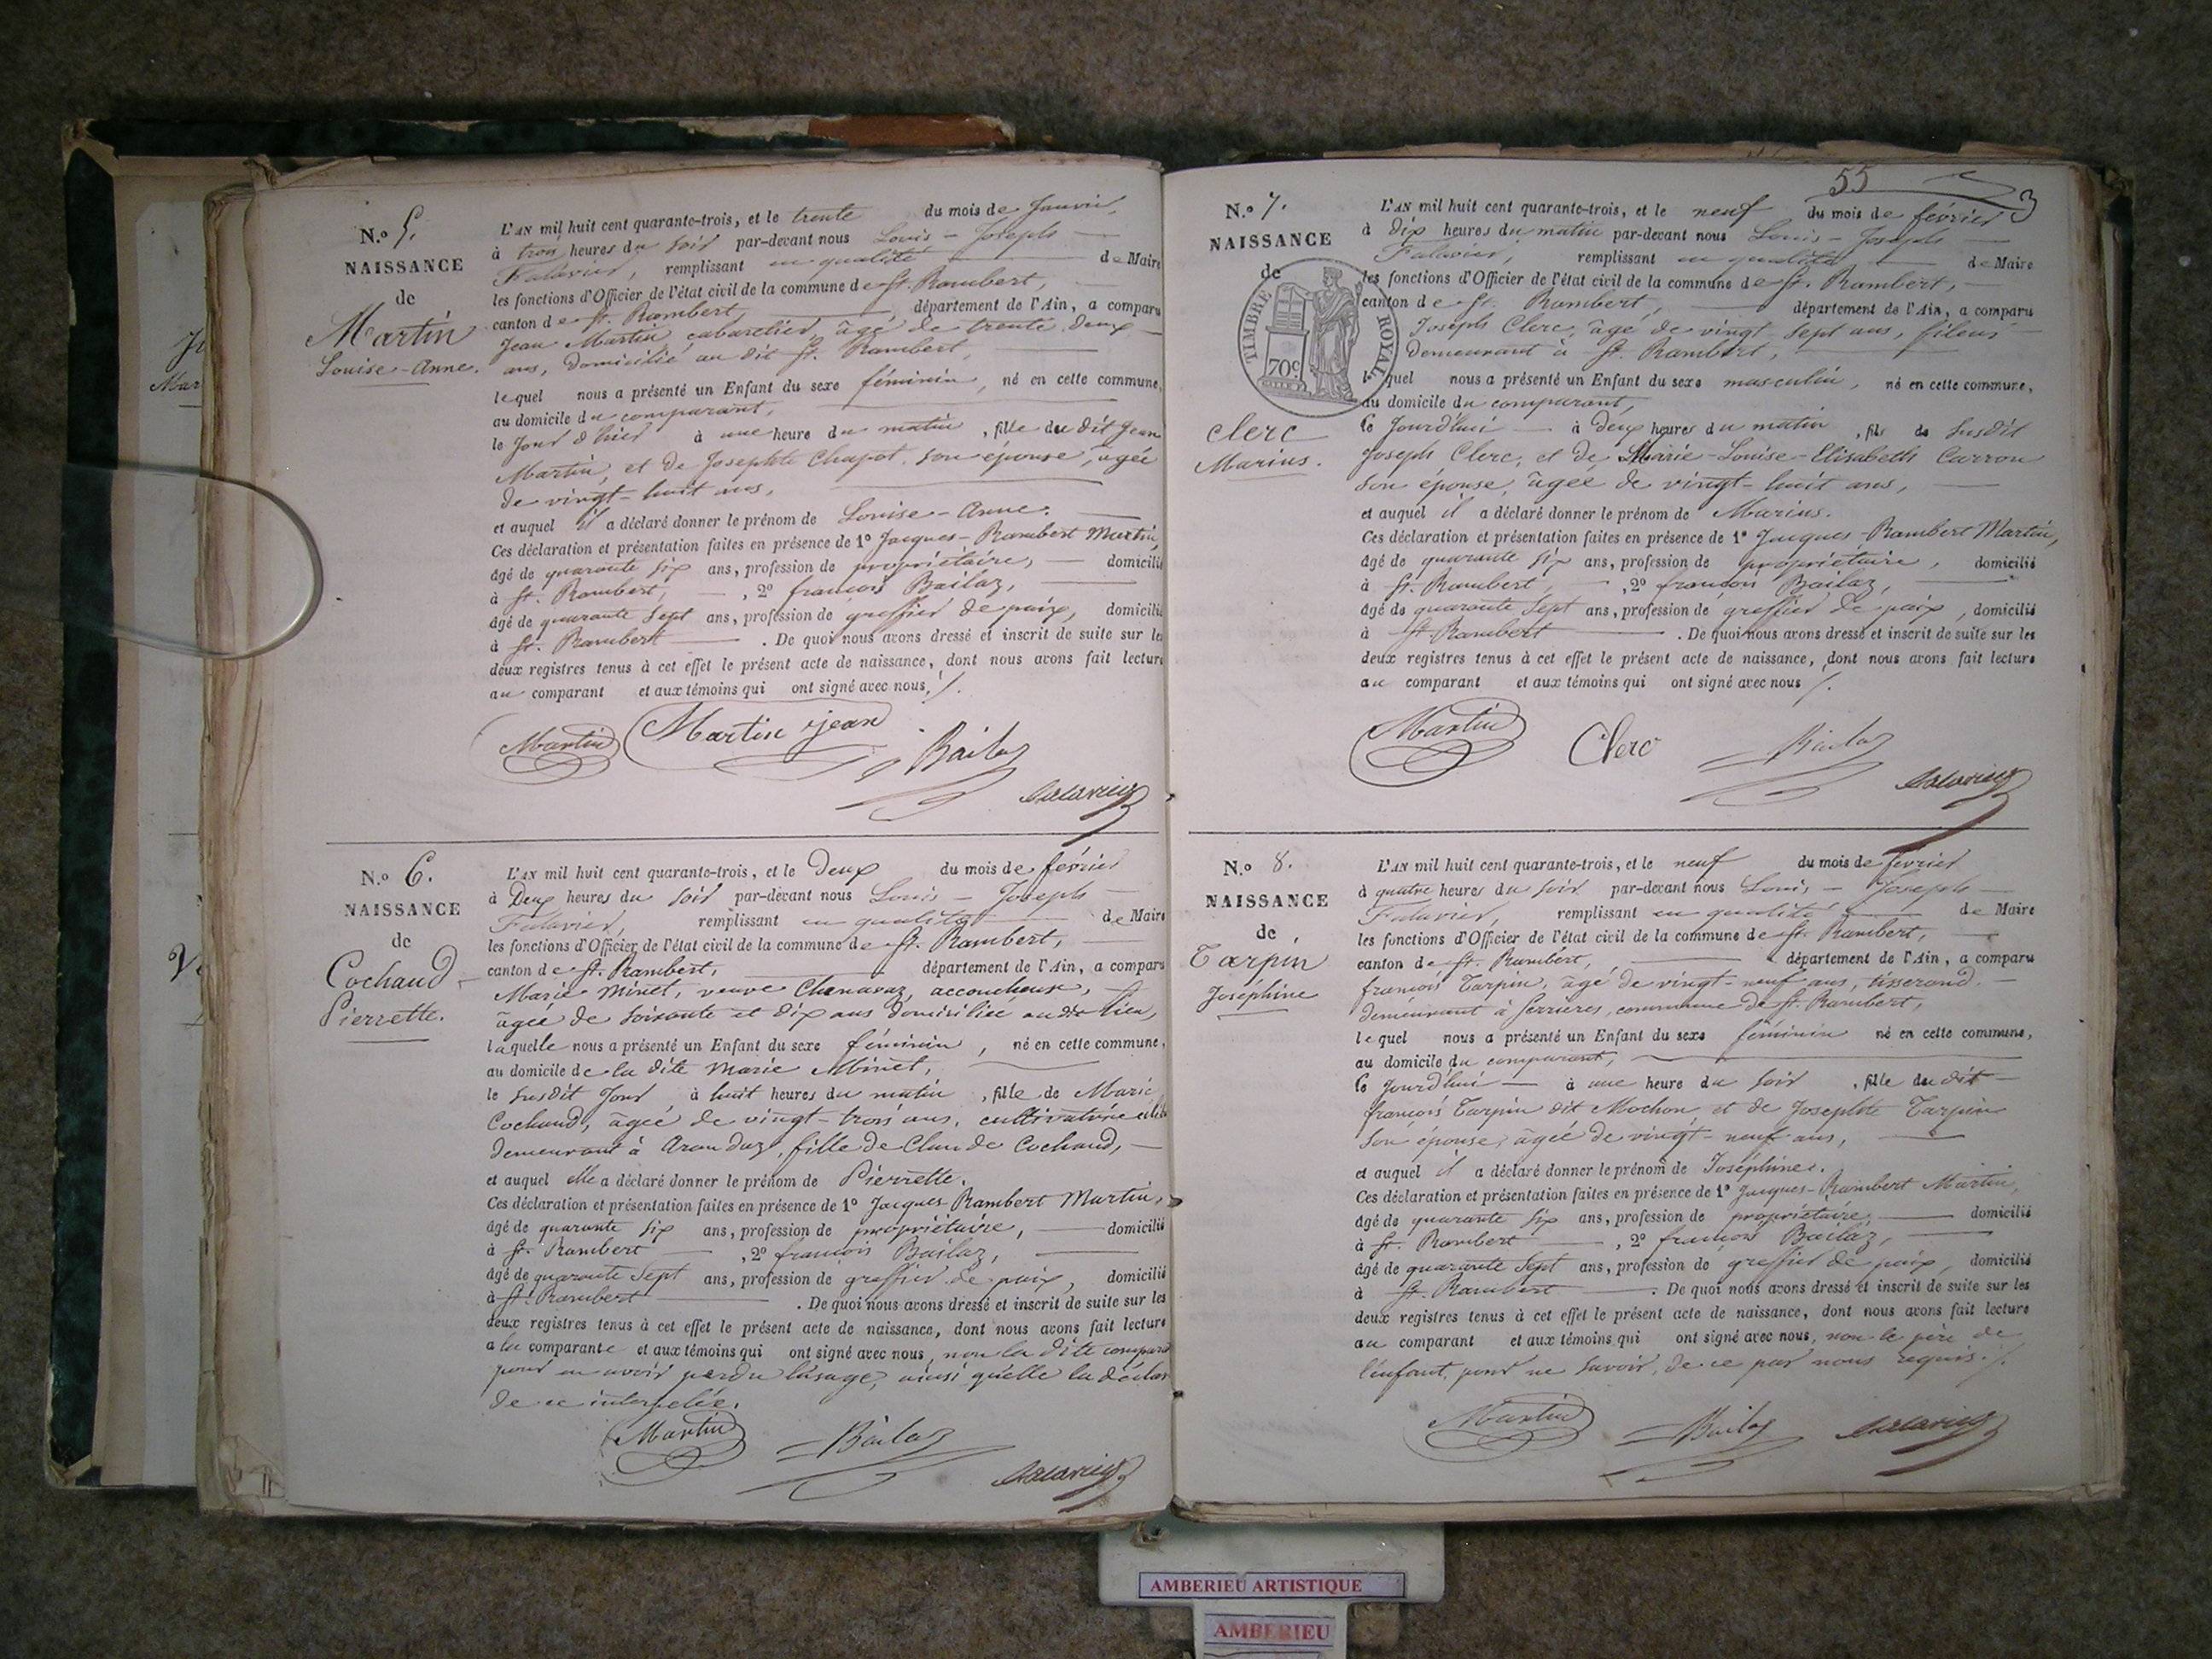 N.o 5.
NAISSANCE
de
Martin
Louise-Anne.
L'AN mil huit cent quarante-trois, et le trente du mois de Janvier,
à trois heures du soir par-devant nous Louis-Joseph
Falavier, remplissant en qualité de Maire
les fonctions d'Officier de l'état civil de la commune de St. Rambert,
canton de St. Rambert, département de l'Ain, a comparu
Jean Martin, cabaretier, âgé de trente deux
ans, domicilié au dit St. Rambert,
lequel nous a présenté un Enfant du sexe féminin, né en cette commune,
au domicile du comparant,
le jour d'hier à une heure du matin, fille du dit Jean
Martin, et de Josephte Chapot, son épouse, âgée
de vingt-huit ans,
et auquel il a déclaré donner le prénom de Louise-Anne.
Ces déclaration et présentation faites en présence de 1º Jacques-Rambert Martin,
âgé de quarante six ans, profession de propriétaire, domicilié
à St. Rambert, 2º françois Bailaz,
âgé de quarante sept ans, profession de greffier de paix, domicilié
à St. Rambert. De quoi nous avons dressé et inscrit de suite sur les
deux registres tenus à cet effet le présent acte de naissance, dont nous avons fait lecture
au comparant et aux témoins qui ont signé avec nous,
Martin Martin jean Bailaz
Falavier
N.o 6.
NAISSANCE
de
Cochaud
Pierrette.
L'AN mil huit cent quarante-trois, et le Deux du mois de février
à Deux heures du soir par-devant nous Louis-Joseph
Falavier, remplissant en qualité de Maire
les fonctions d'Officier de l'état civil de la commune de St. Rambert,
canton de St. Rambert, département de l'Ain, a comparu
Marie Minet, veuve Chenavaz, accoucheuse,
âgée de soixante et dix ans domiciliée au dit lieu,
laquelle nous a présenté un Enfant du sexe féminin, né en cette commune,
au domicile de la dite Marie Minet,
le susdit jour à huit heures du matin, fille de Marie
Cochaud, âgée de vingt-trois ans, cultivatrice
demeurant à Arandaz, fille de Claude Cochaud,
et auquel elle a déclaré donner le prénom de Pierrette.
Ces déclaration et présentation faites en présence de 1º Jacques-Rambert Martin,
âgé de quarante six ans, profession de propriétaire, domicilié
à St. Rambert, 2º françois Bailaz,
âgé de quarante sept ans, profession de greffier de paix, domicilié
à St. Rambert. De quoi nous avons dressé et inscrit de suite sur les
deux registres tenus à cet effet le présent acte de naissance, dont nous avons fait lecture
a la comparante et aux témoins qui ont signé avec nous, non la dite
pour en avoir perdu l'usage, ainsi qu'elle l'a
de ce interpelée.
Martin Bailaz
Falavier
55 3
N.o 7.
NAISSANCE
de
TIMBRE ROYAL
70c
Clerc
Marius.
L'AN mil huit cent quarante-trois, et le neuf du mois de février
à dix heures du matin par-devant nous Louis-Joseph
Falavier, remplissant en qualité de Maire
les fonctions d'Officier de l'état civil de la commune de St. Rambert,
canton de St. Rambert, département de l'Ain, a comparu
Joseph Clerc, âgé de vingt sept ans, fileur
demeurant à St. Rambert,
lequel nous a présenté un Enfant du sexe masculin, né en cette commune,
au domicile du comparant,
ce jourd'hui à deux heures du matin, fils de susdit
Joseph Clerc, et de Marie-Louise-Elisabeth Carron
son épouse, âgée de vingt-huit ans,
et auquel il a déclaré donner le prénom de Marius.
Ces déclaration et présentation faites en présence de 1º Jacques-Rambert Martin,
âgé de quarante six ans, profession de propriétaire, domicilié
à St. Rambert, 2º françois Bailaz,
âgé de quarante sept ans, profession de greffier de paix, domicilié
à St. Rambert. De quoi nous avons dressé et inscrit de suite sur les
deux registres tenus à cet effet le présent acte de naissance, dont nous avons fait lecture
au comparant et aux témoins qui ont signé avec nous
Martin Clerc Bailaz
Falavier
N.o 8.
NAISSANCE
de
Tarpin
Joséphine
L'AN mil huit cent quarante-trois, et le neuf du mois de février
à quatre heures du soir par-devant nous Louis-Joseph
Falavier, remplissant en qualité de Maire
les fonctions d'Officier de l'état civil de la commune de St. Rambert,
canton de St. Rambert, département de l'Ain, a comparu
françois Tarpin, âgé de vingt-neuf ans, tisserand,
demeurant à Serrières, commune de St. Rambert,
lequel nous a présenté un Enfant du sexe féminin né en cette commune,
au domicile du comparant,
ce jourd'hui à une heure du soir, fille du dit
françois Tarpin dit Mochon, et de Josephte Tarpin
son épouse, âgée de vingt-neuf ans,
et auquel il a déclaré donner le prénom de Joséphine.
Ces déclaration et présentation faites en présence de 1º Jacques-Rambert Martin,
âgé de quarante six ans, profession de propriétaire, domicilié
à St. Rambert, 2º françois Bailaz,
âgé de quarante sept ans, profession de greffier de paix, domicilié
à St. Rambert. De quoi nous avons dressé et inscrit de suite sur les
deux registres tenus à cet effet le présent acte de naissance, dont nous avons fait lecture
au comparant et aux témoins qui ont signé avec nous, non le père de
l'enfant, pour ne savoir, de ce par nous requis.
Martin Bailaz Falavier
AMBERIEU ARTISTIQUE
AMBERIEU